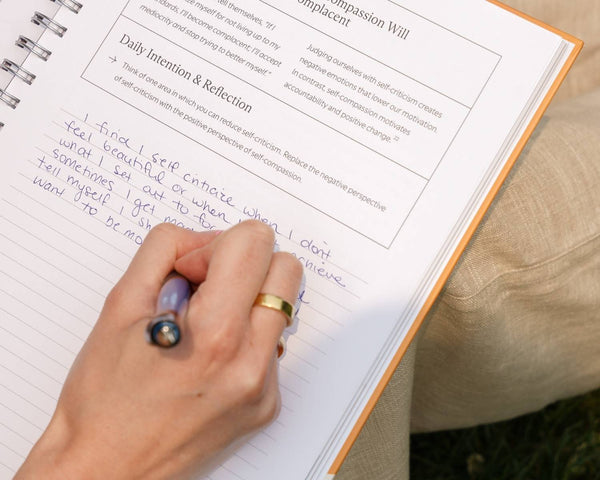 Compassion Will
Complacent
tell themselves, "If
myself for not living up to my
standards, I'll become complacent. I'll accept
mediocrity and stop trying to better myself."
Judging ourselves with self-criticism creates
negative emotions that lower our motivation.
In contrast, self-compassion motivates
accountability and positive change.
Daily Intention & Reflection
→ Think of one area in which you can reduce self-criticism. Replace the negative perspective
of self-criticism with the positive perspective of self-compassion.
I find I self critisize when I don't
feel beautiful or when I don't achieve
what I set out to for
sometimes I get
tell myself I sh
want to be mo